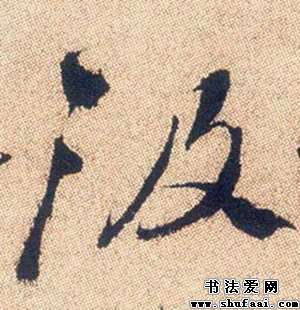 汲
书法爱网
www.shufaai.com